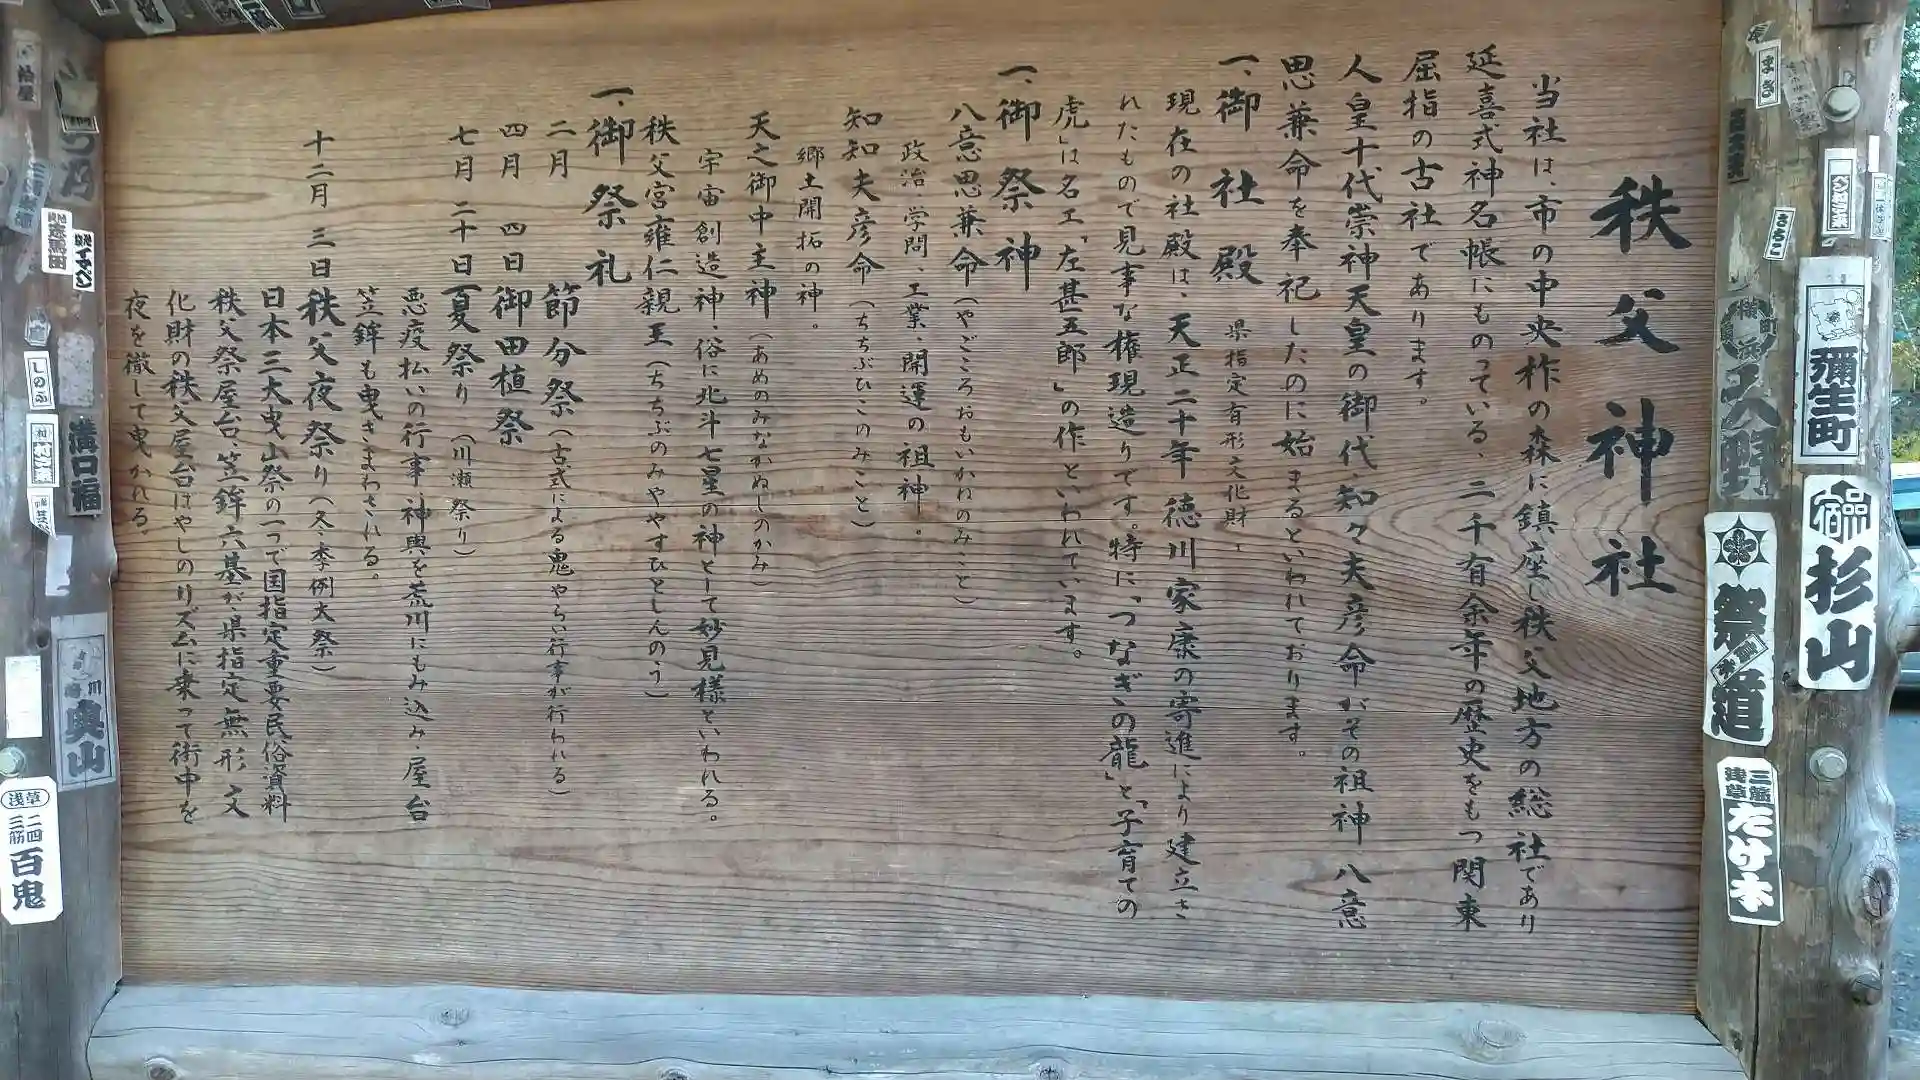 秩父神社
当社は、市の中央柞の森に鎮座し秩父地方の総社であり
延喜式神名帳にものっている、二千有余年の歴史をもつ関東
屈指の古社であります。
人皇十代崇神天皇の御代知々夫彦命がその祖神八意
思兼命を奉祀したのに始まるといわれております。
一、御社殿 県指定有形文化財、
現在の社殿は、天正二十年徳川家康の寄進により建立さ
れたもので見事な権現造りです。特に「つなぎの龍」と「子育ての
虎」は名工「左甚五郎」の作といわれています。
一、御祭神
八意思兼命（やごころおもいかねのみこと）
政治、学問、工業、開運の祖神。
知知夫彦命（ちちぶひこのみこと）
郷土開拓の神。
天之御中主神（あめのみなかぬしのかみ）
宇宙創造神、俗に北斗七星の神として妙見様といわれる。
秩父宮雍仁親王（ちちぶのみややすひとしんのう）
一、御祭礼
二月 節分祭（古式による鬼やらい行事が行われる）
四月 四日 御田植祭
七月 二十日 夏祭り（川瀬祭り）
悪疫払いの行事神輿を荒川にもみ込み、屋台
笠鉾も曳きまわされる。
十二月 三日 秩父夜祭り（冬季例大祭）
日本三大曳山祭の一つで国指定重要民俗資料
秩父祭屋台、笠鉾六基が、県指定無形文
化財の秩父屋台ばやしのリズムに乗って街中を
夜を徹して曳かれる。
まき
彌生町
杉山
祭道
三筋
浅草
たけ本
溝口福
しのぶ
奥山
浅草
三筋
二四
百鬼